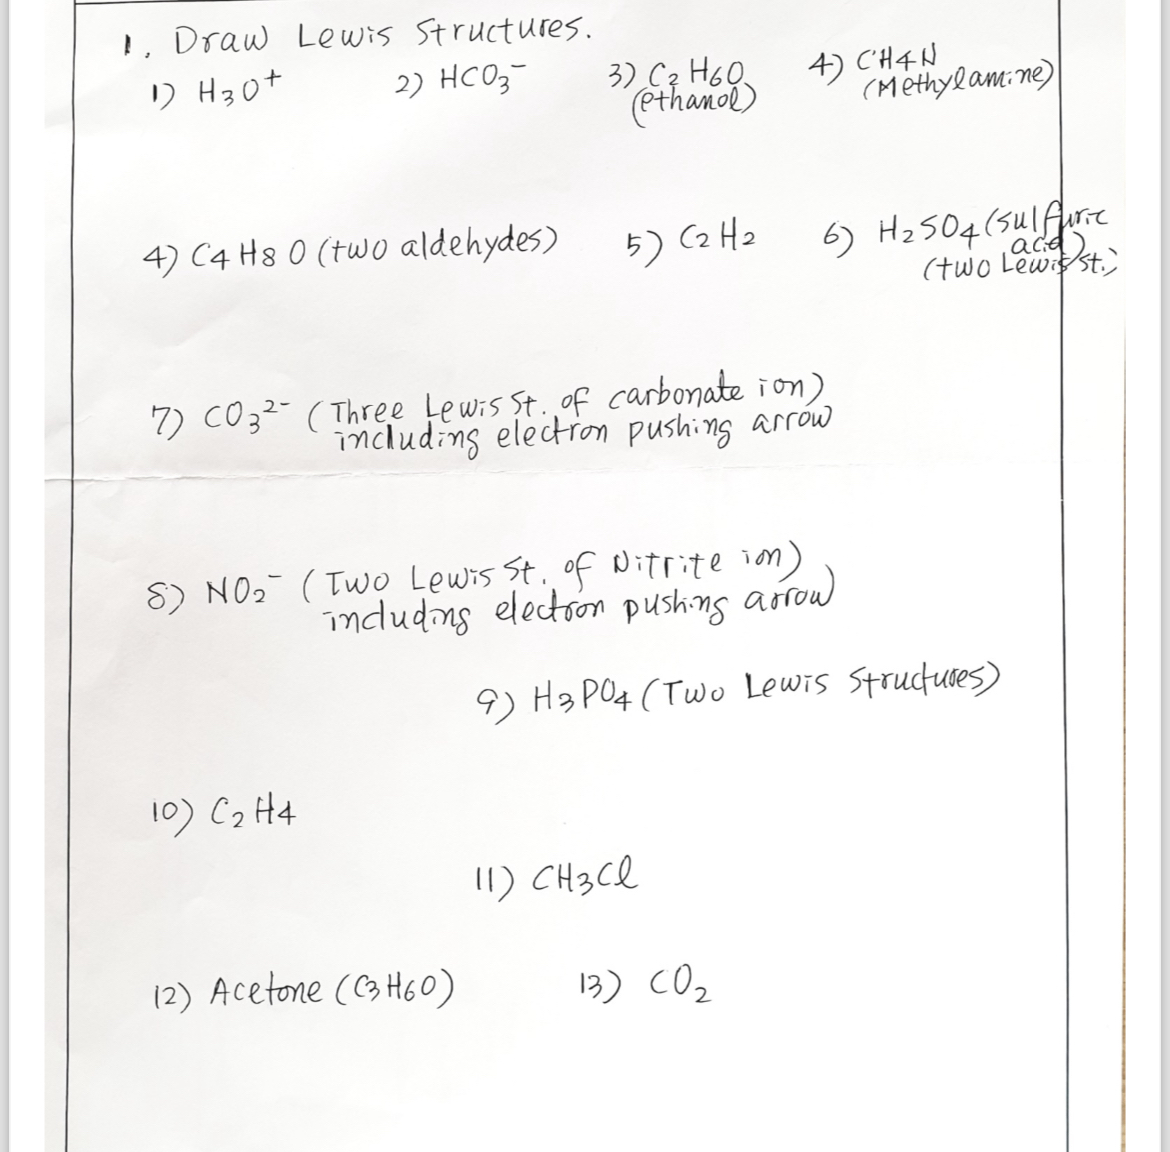 1. Draw Lewis Structures.
1) H3O+
2) HCO3-
3) C2H6O
(ethanol)
4) CH4N
(Methylamine)
4) C4H8O (two aldehydes)
5) C2H2
6) H2SO4 (sulfuric
acid)
(two Lewis st.)
7) CO3 2- (Three Lewis St. of carbonate ion)
including electron pushing arrow
8) NO2- (Two Lewis St. of Nitrite ion)
including electron pushing arrow)
9) H3PO4 (Two Lewis Structures)
10) C2H4
11) CH3Cl
12) Acetone (C3H6O)
13) CO2